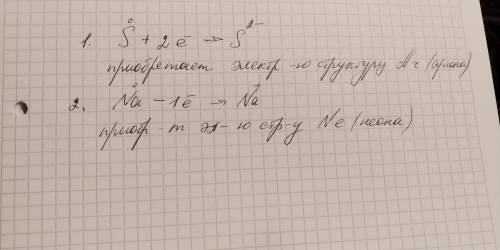 1. S⁰ + 2ē → S²⁻
приобретает электр-ю структуру Ar (аргона)
2. Na⁰ - 1ē → Na⁺
приобр-т эл-ю стр-у Ne (неона)